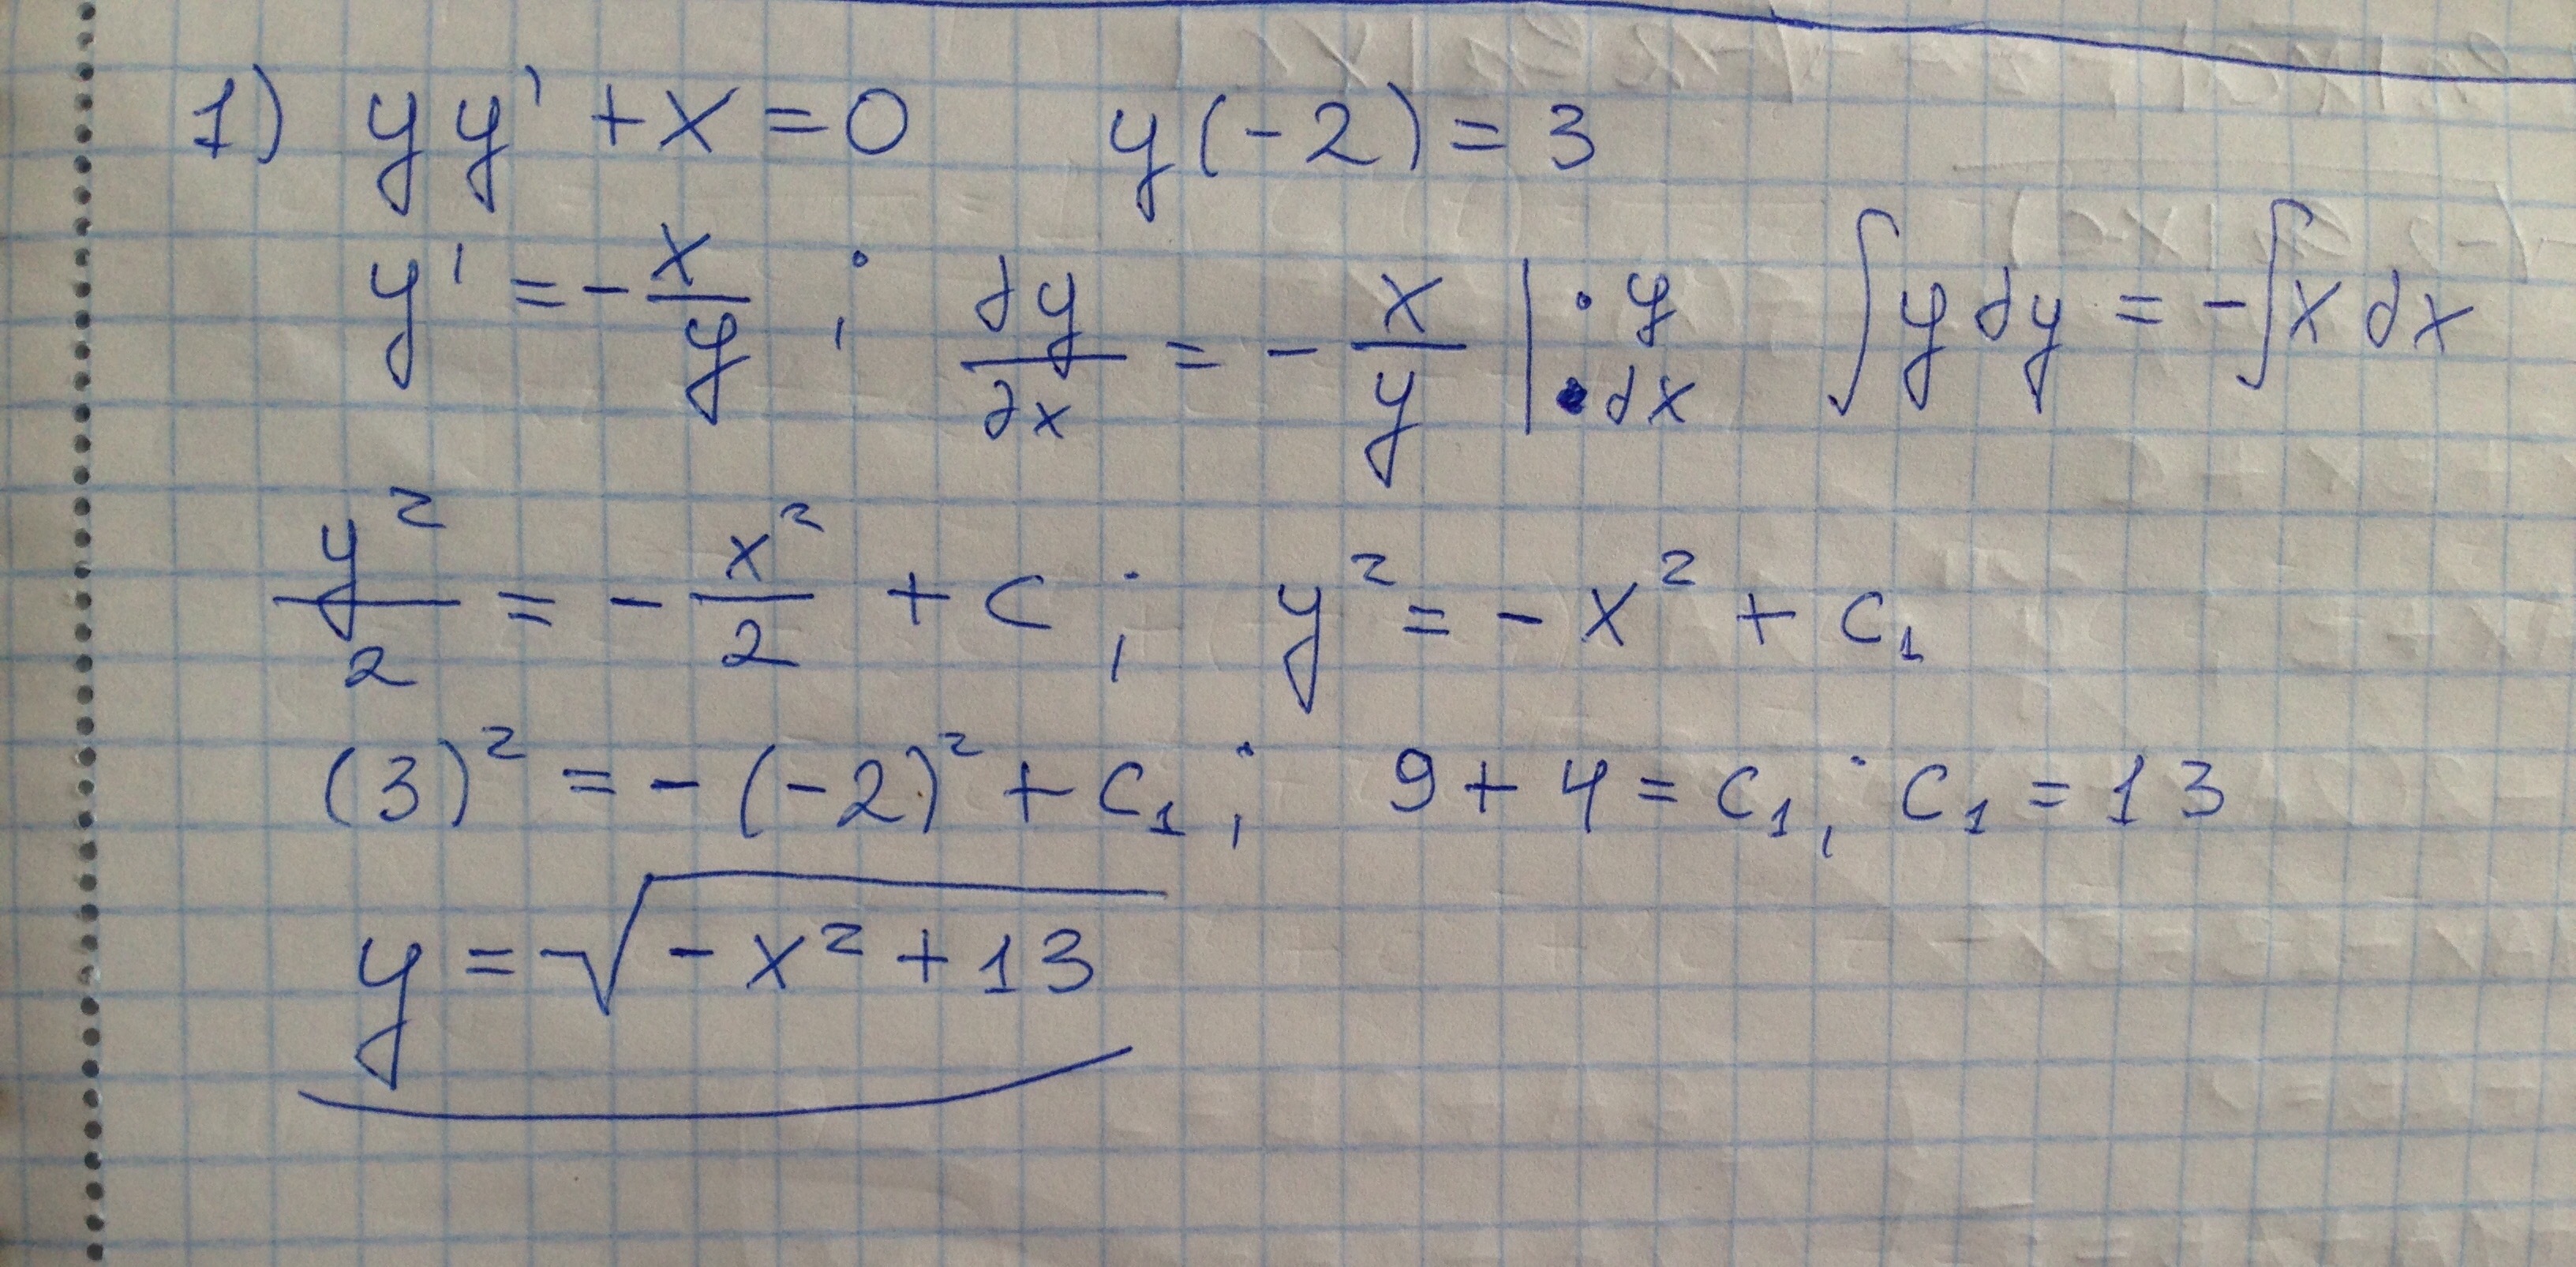 1) yy' + x = 0   y(-2) = 3
y' = -x/y ; dy/dx = -x/y | · y · dx   ∫y dy = -∫x dx
y²/2 = -x²/2 + c ; y² = -x² + c₁
(3)² = -(-2)² + c₁ ; 9 + 4 = c₁ ; c₁ = 13
y = √(-x² + 13)